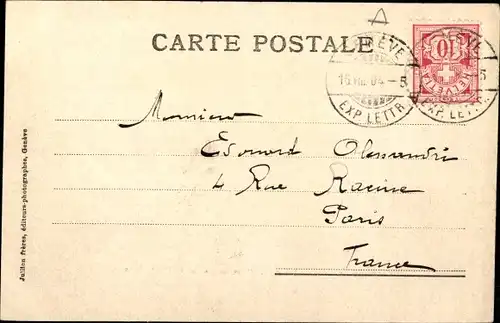 CARTE POSTALE
GENÈVE
16.III.04.-5
EXP. LETTR.
10
HELVETIA
EXP. LETTR.
Monsieur
Edouard Alessandri
4 Rue Racine
Paris
France
Jullien frères, éditeurs-photographes, Genève